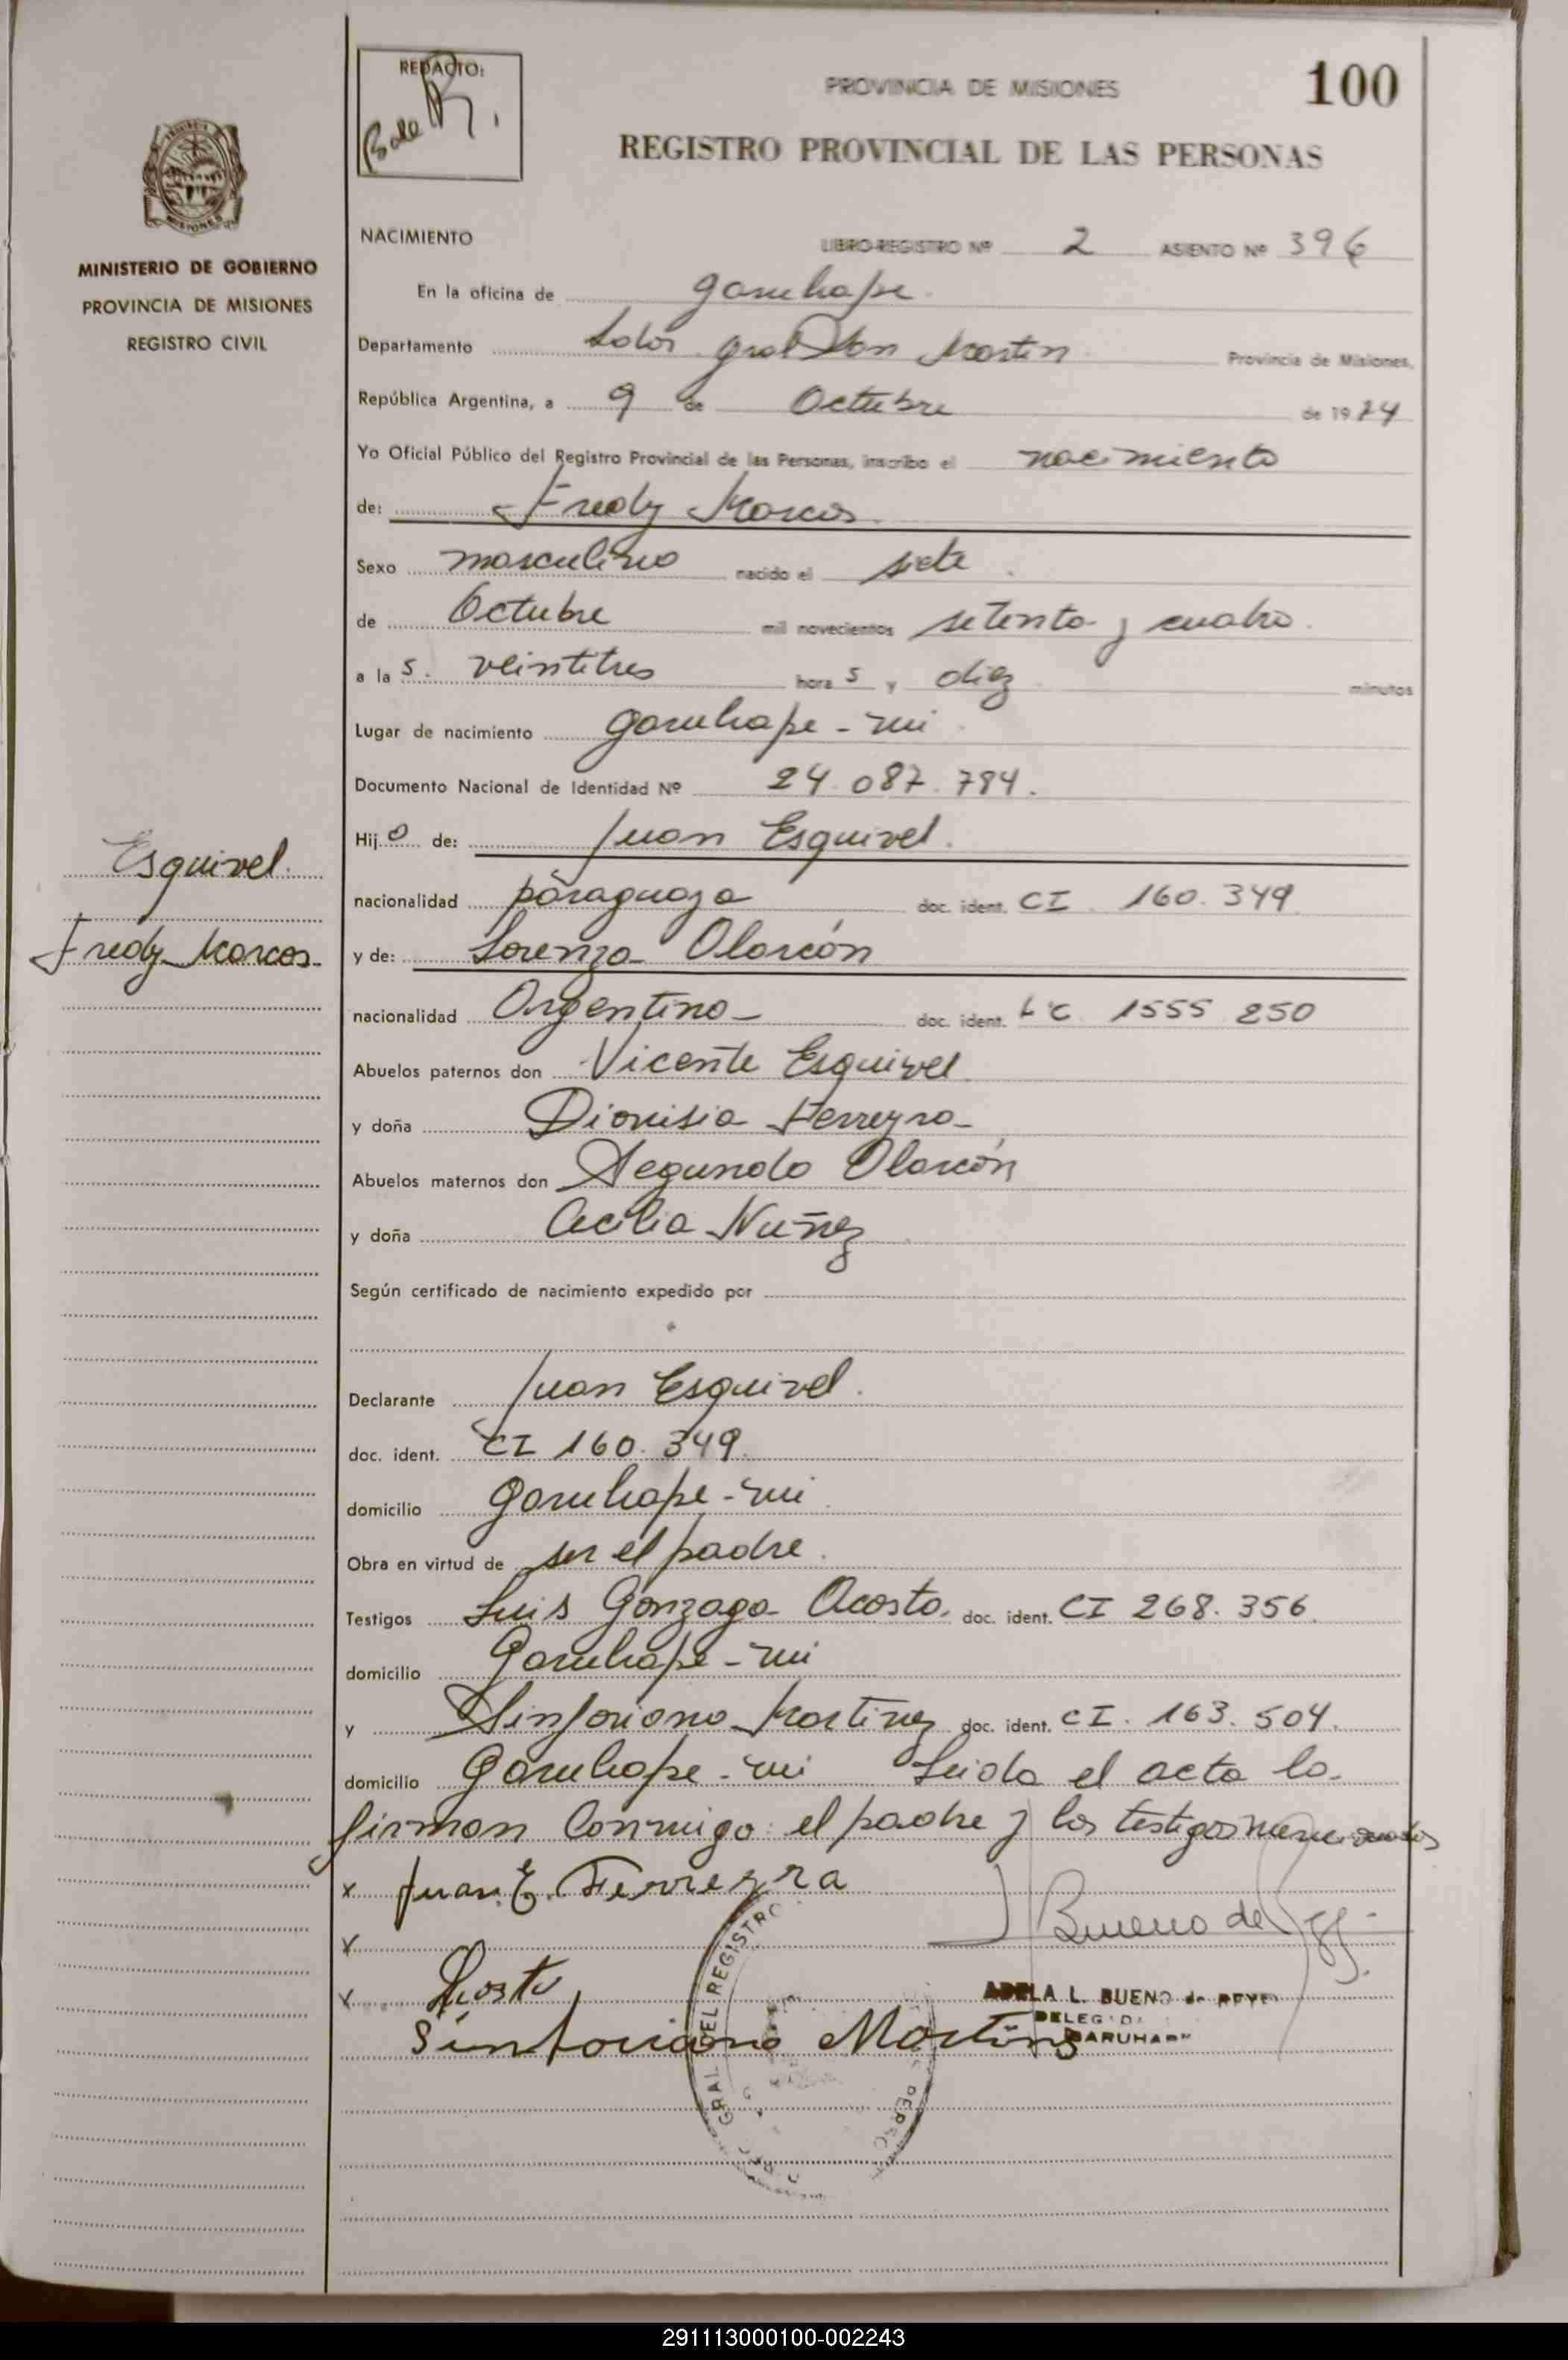 REDACTO:
PROVINCIA DE MISIONES
100
REGISTRO PROVINCIAL DE LAS PERSONAS
MISIONES
MINISTERIO DE GOBIERNO
PROVINCIA DE MISIONES
REGISTRO CIVIL
NACIMIENTO LIBRO-REGISTRO Nº 2 ASIENTO Nº 396
En la oficina de Garuhape.
Departamento Lib. Gral San Martin Provincia de Misiones.
República Argentina, a 9 de Octubre de 1974
Yo Oficial Público del Registro Provincial de las Personas, inscribo el nacimiento
de: Fredy Marcos.
Sexo masculino nacido el siete.
de Octubre mil novecientos setenta y cuatro.
a las. veintitres horas y diez minutos
Lugar de nacimiento Garuhape-mi.
Documento Nacional de Identidad Nº 24.087.784.
Hijo de: Juan Esquivel.
Esquivel.
Fredy Marcos-
nacionalidad paraguaya doc. ident. CI 160.349
y de: Lorenza Alarcón
nacionalidad Argentina- doc. ident. LC 1555 250
Abuelos paternos don Vicente Esquivel
y doña Dionisia Ferreyra-
Abuelos maternos don Segundo Alarcón
y doña Cecilia Nuñez
Según certificado de nacimiento expedido por
Declarante Juan Esquivel.
doc. ident. CI 160.349
domicilio Garuhape-mi
Obra en virtud de ser el padre.
Testigos Luis Gonzaga Acosta. doc. ident. CI 268.356.
domicilio Garuhape-mi
y Sinforiano Martinez doc. ident. CI. 163.504.
domicilio Garuhape-mi Leida el acta la
firman conmigo el padre y los testigos
x Juan E. Ferreyra
x Bueno de
x Acosta
ADELA L. BUENO de REYES
DELEGADA
GARUHAPE
Sinforiano Martinez
GRAL DEL REGISTRO
291113000100-002243